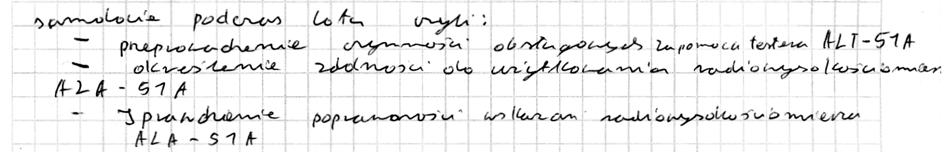 samolocie podczas lotu czyli:
- przeprowadzenie czynności obsługowych za pomocą testera ALT-51A
- określenie zdolności do użytkowania radiowysokościomierza
ALA-51A
- Sprawdzenie poprawności wskazań radiowysokościomierza
ALA-51A